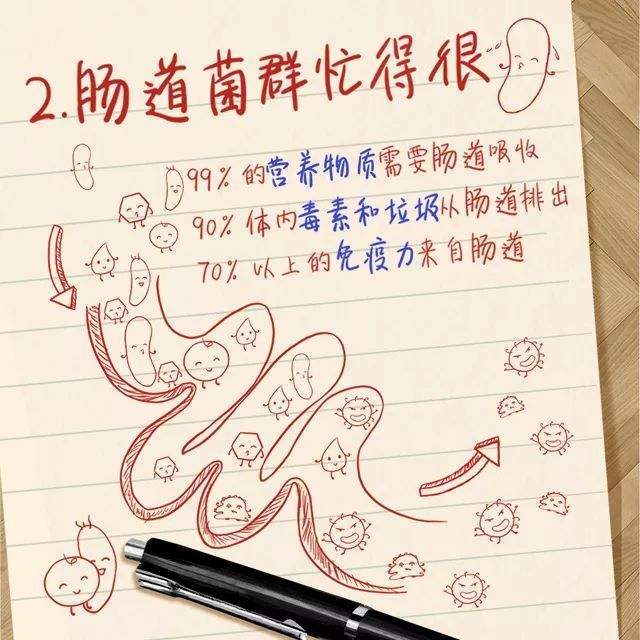 2.肠道菌群忙得很
99%的营养物质需要肠道吸收
90%体内毒素和垃圾从肠道排出
70%以上的免疫力来自肠道